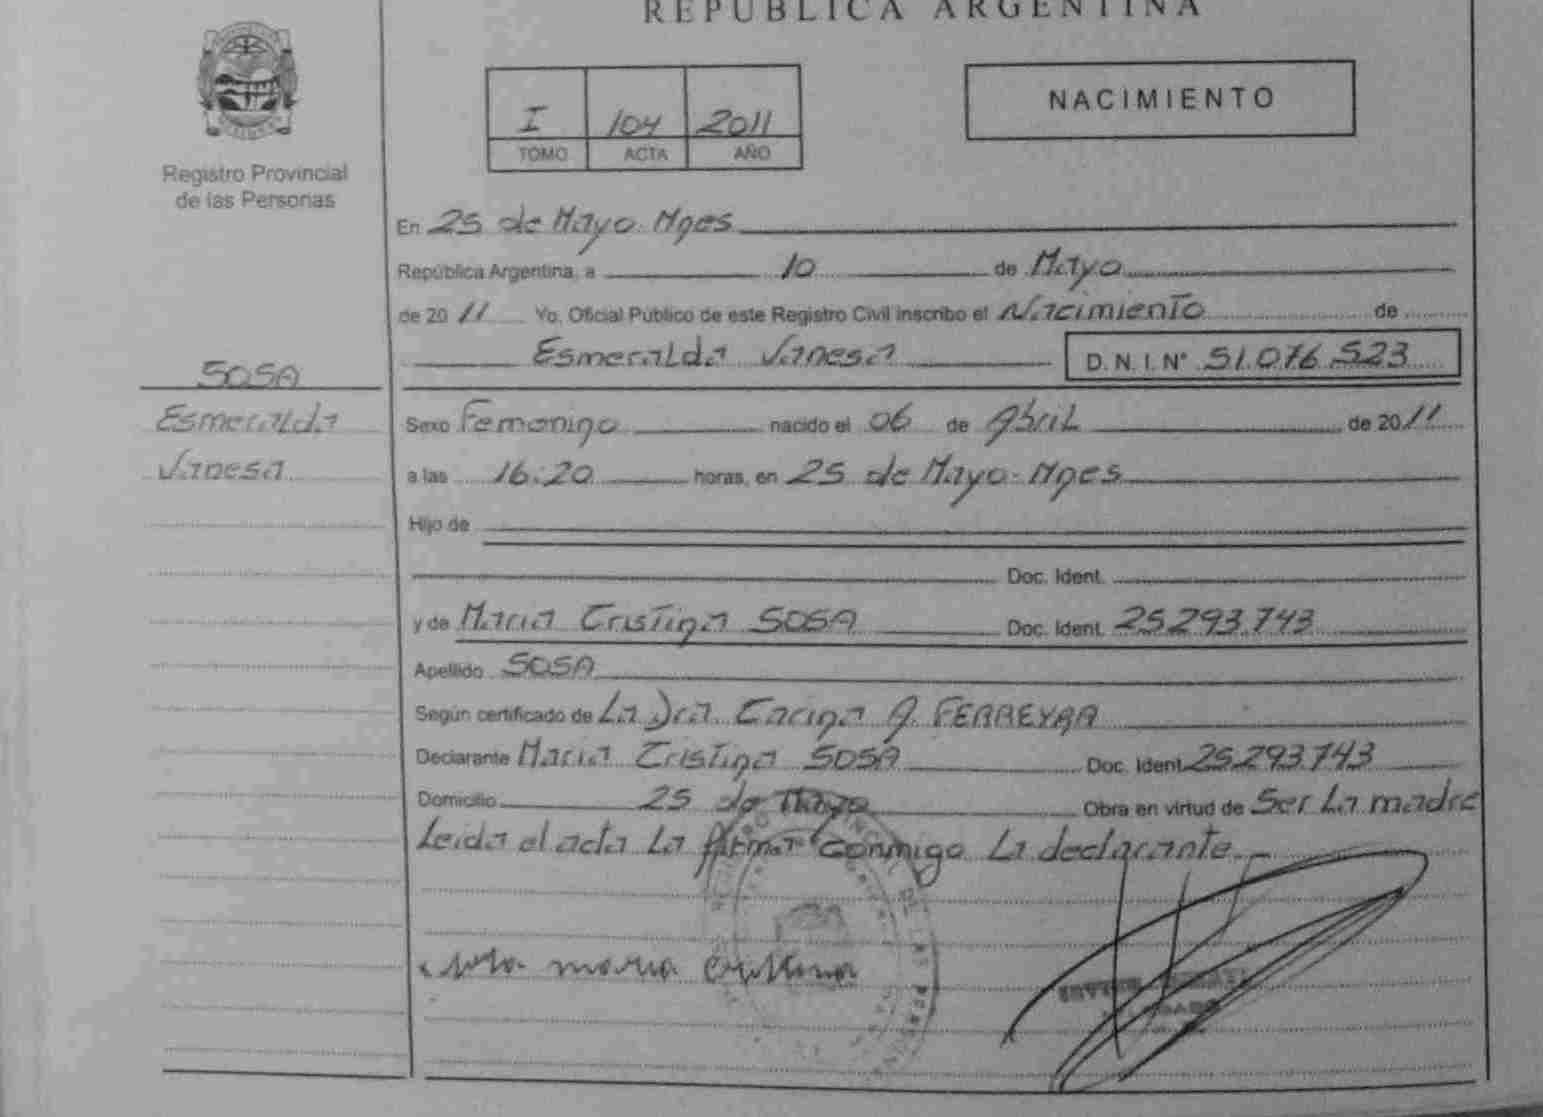 REPUBLICA ARGENTINA
Registro Provincial
de las Personas
I 104 2011
TOMO ACTA AÑO
NACIMIENTO
En 25 de Mayo. Mnes
República Argentina, a 10 de Mayo
de 2011 Yo, Oficial Público de este Registro Civil inscribo el Nacimiento de
Esmeralda Vanesa D.N.I.N° 51.076.523
SOSA
Esmeralda
Vanesa
Sexo Femenino nacido el 06 de Abril de 2011
a las 16:20 horas, en 25 de Mayo-Mnes
Hijo de
Doc. Ident.
y de Maria Cristina SOSA Doc. Ident. 25.293.743
Apellido SOSA
Según certificado de La Dra. Carina A. FERREYRA
Declarante Maria Cristina SOSA Doc. Ident 25.293.743
Domicilio 25 de Mayo Obra en virtud de Ser La madre
Leida el acta La firma conmigo La declarante.-
sosa maria cristina